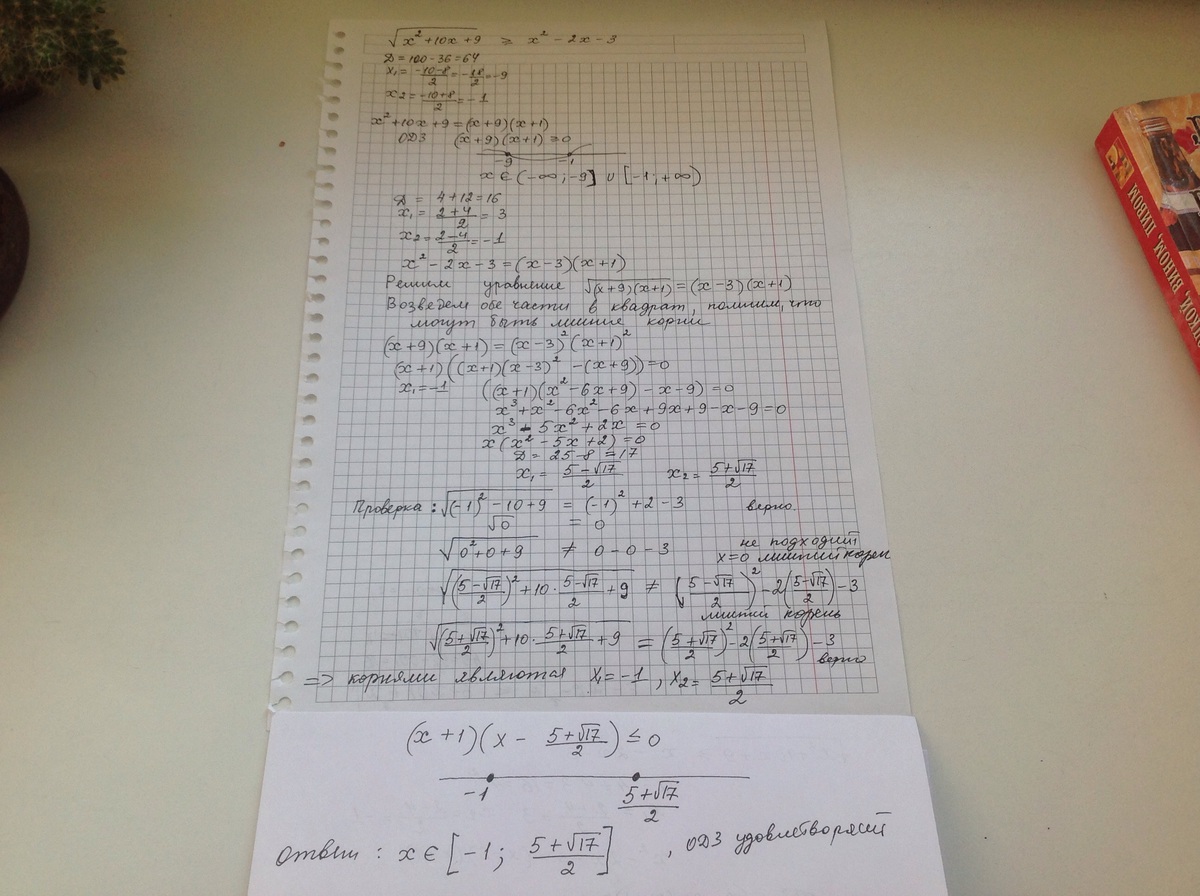 √(x² + 10x + 9) ≥ x² - 2x - 3
D = 100 - 36 = 64
x₁ = (-10-8)/2 = -18/2 = -9
x₂ = (-10+8)/2 = -1
x² + 10x + 9 = (x+9)(x+1)
ОДЗ (x+9)(x+1) ≥ 0
-9 -1
x ∈ (-∞; -9] ∪ [-1; +∞)
D = 4 + 12 = 16
x₁ = (2+4)/2 = 3
x₂ = (2-4)/2 = -1
x² - 2x - 3 = (x-3)(x+1)
Решим уравнение √((x+9)(x+1)) = (x-3)(x+1)
Возведем обе части в квадрат, помним, что
могут быть лишние корни
(x+9)(x+1) = (x-3)²(x+1)²
(x+1)((x+1)(x-3)² - (x+9)) = 0
x₁ = -1 ((x+1)(x² - 6x + 9) - x - 9) = 0
x³ + x² - 6x² - 6x + 9x + 9 - x - 9 = 0
x³ - 5x² + 2x = 0
x(x² - 5x + 2) = 0
D = 25 - 8 = 17
x₁ = (5-√17)/2 x₂ = (5+√17)/2
Проверка: √((-1)² - 10 + 9) = (-1)² + 2 - 3 верно
√0 = 0
√(0² + 0 + 9) ≠ 0 - 0 - 3 не подходит
x=0 лишний корен
√(((5-√17)/2)² + 10·(5-√17)/2 + 9) ≠ ((5-√17)/2)² - 2((5-√17)/2) - 3
лишний корень
√(((5+√17)/2)² + 10·(5+√17)/2 + 9) = ((5+√17)/2)² - 2((5+√17)/2) - 3
верно
=> корнями являются x₁ = -1, x₂ = (5+√17)/2
(x+1)(x - (5+√17)/2) ≤ 0
-1 (5+√17)/2
Ответ: x ∈ [-1; (5+√17)/2], ОДЗ удовлетворяет
ВИНОМ, ПИВОМ